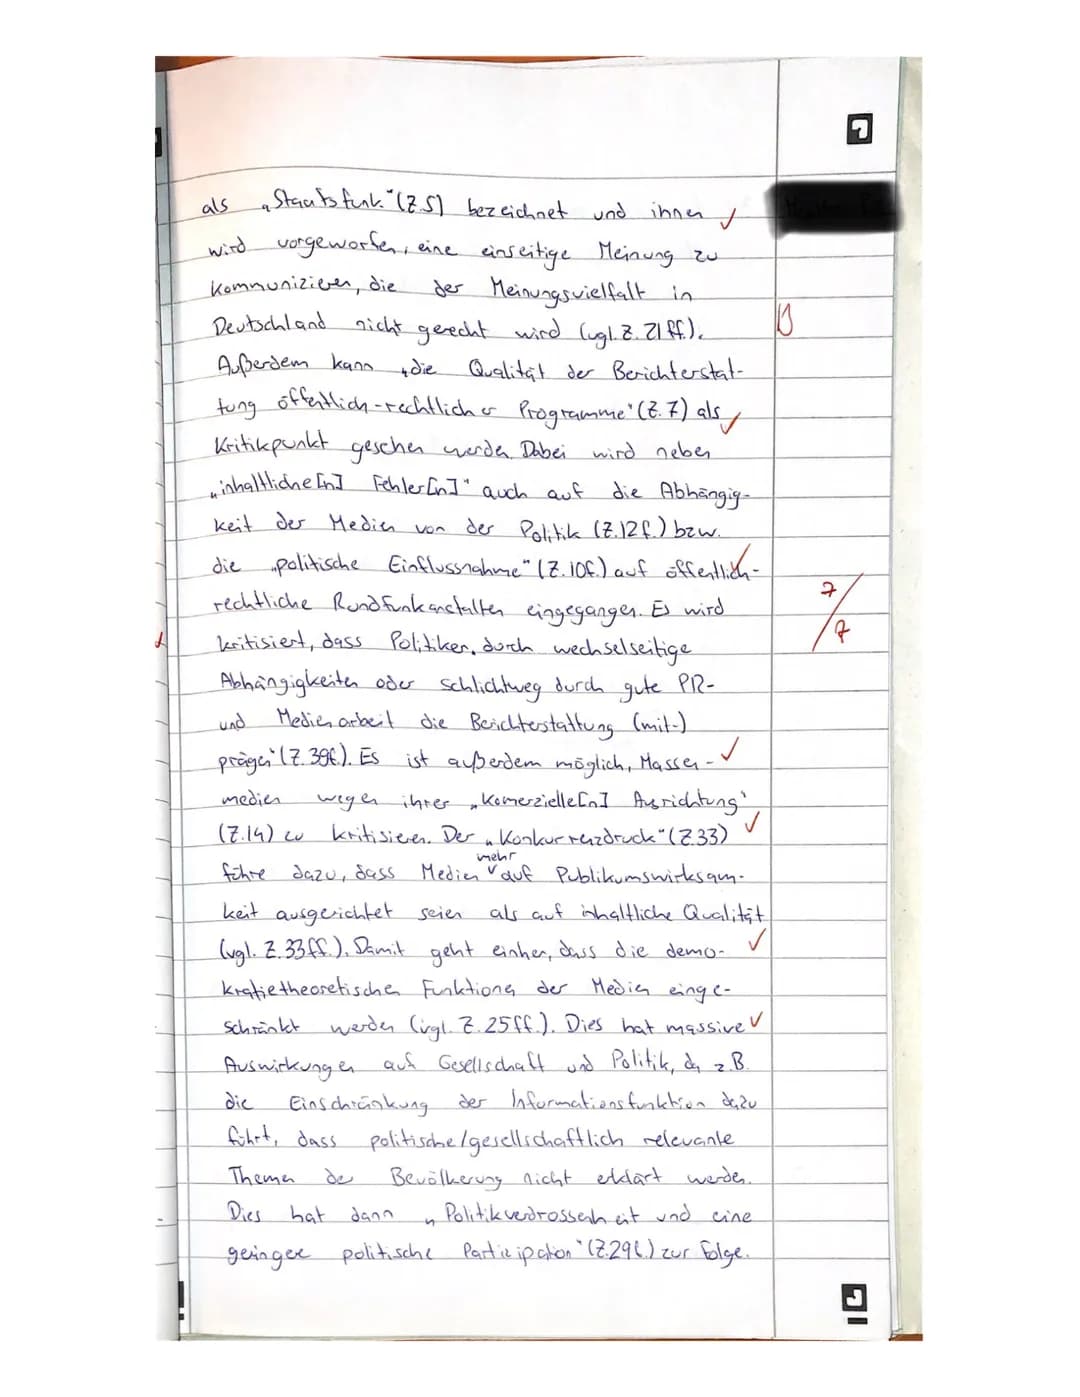 als „Staatsfunk" (Z.5) bezeichnet und ihnen
wird vorgeworfen, eine einseitige Meinung zu
kommunizieren, die der Meinungsvielfalt in
Deutschland nicht gerecht wird (vgl. Z. 21 ff.).
Außerdem kann „die Qualität der Berichterstat-
tung öffentlich-rechtlicher Programme" (Z. 7) als
Kritikpunkt gesehen werden. Dabei wird neben
„inhaltliche[n] Fehler[n]" auch auf die Abhängig-
keit der Medien von der Politik (Z.12f.) bzw.
die „politische Einflussnahme" (Z.10f.) auf öffentlich-
rechtliche Rundfunkanstalten eingegangen. Es wird
kritisiert, dass Politiker „durch wechselseitige
Abhängigkeiten oder schlichtweg durch gute PR-
und Medienarbeit die Berichterstattung (mit-)
prägen" (Z. 39f.). Es ist außerdem möglich, Massen-
medien wegen ihrer „komerzielle[n] Ausrichtung"
(Z.14) zu kritisieren. Der „Konkurrenzdruck" (Z.33)
führe dazu, dass Medien mehr auf Publikumswirksam-
keit ausgerichtet seien als auf inhaltliche Qualität
(vgl. Z.33ff.). Damit geht einher, dass die demo-
kratietheoretischen Funktionen der Medien einge-
schränkt werden (vgl. Z.25ff.). Dies hat massive
Auswirkungen auf Gesellschaft und Politik, da z.B.
die Einschränkung der Informationsfunktion dazu
führt, dass politische/gesellschaftlich relevante
Themen der Bevölkerung nicht erklärt werden.
Dies hat dann „Politikverdrossenheit und eine
geringere politische Partizipation" (Z.29f.) zur Folge.
7/7